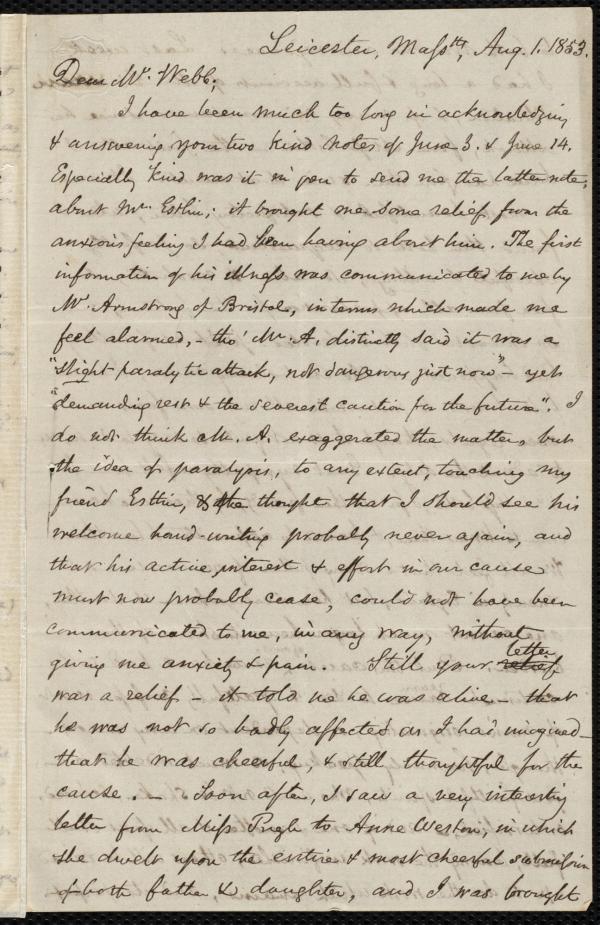 Leicester, Massts, Aug. 1. 1853.
Dear Mr. Webb;
I have been much too long in acknowledging
& answering your two kind notes of June 3. & June 14.
Especially kind was it in you to send me the latter note,
about Mr. Estlin; it brought me some relief from the
anxious feeling I had been having about him. The first
information of his illness was communicated to me by
Mr. Armstrong of Bristol, in terms which made me
feel alarmed, - tho' Mr. A. distinctly said it was a
"slight paralytic attack, not dangerous just now" - yet
"demanding rest & the severest caution for the future". I
do not think Mr. A. exaggerated the matter, but
the idea of paralysis, to any extent, touching my
friend Estlin, & the thought that I should see his
welcome hand-writing probably never again, and
that his active interest & effort in our cause
must now probably cease, could not have been
communicated to me, in any way, without
giving me anxiety & pain. Still your relief letter
was a relief - it told me he was alive - that
he was not so badly affected as I had imagined -
that he was cheerful, & still thoughtful for the
cause. - Soon after, I saw a very interesting
letter from Miss Pugh to Anne Weston, in which
she dwelt upon the entire & most cheerful submission
of both father & daughter, and I was brought